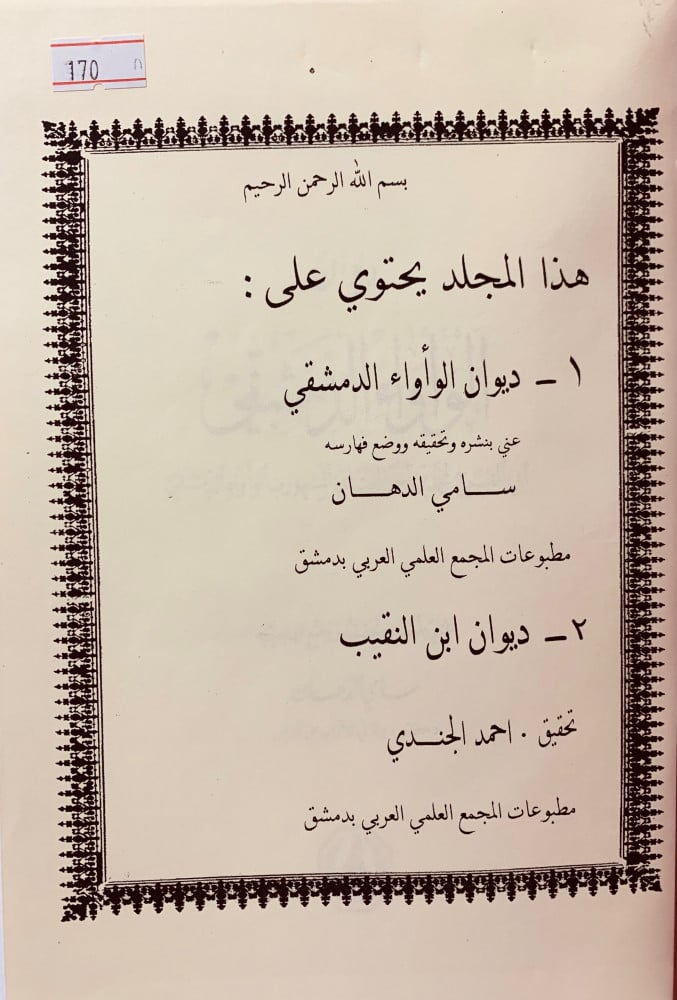 170
بسم الله الرحمن الرحيم
هذا المجلد يحتوي على :
١ - ديوان الوأواء الدمشقي
عني بنشره وتحقيقه ووضع فهارسه
ســامي الدهــان
مطبوعات المجمع العلمي العربي بدمشق
٢ - ديوان ابن النقيب
تحقيق . احمد الجنــدي
مطبوعات المجمع العلمي العربي بدمشق